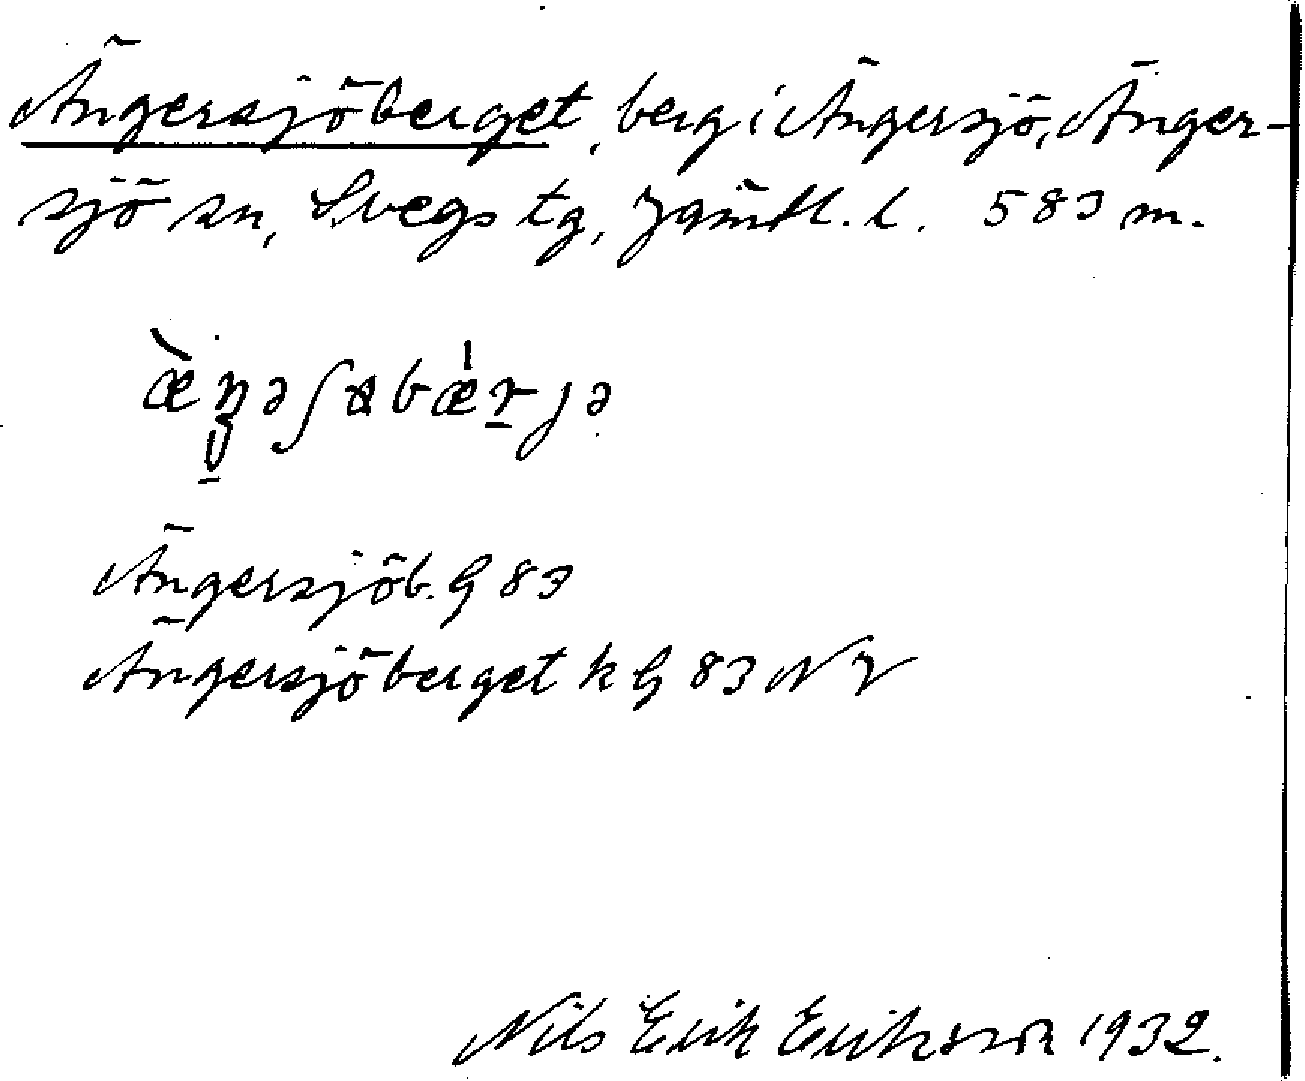 Ängersjöberget, berg i Ängersjö, Änger-
sjö sn, Svegs tg, Jämtl. l. 583 m.
Ängersjöb. G 83
Ängersjöberget k G 83 NV
Nils Erik Eriksson 1932.